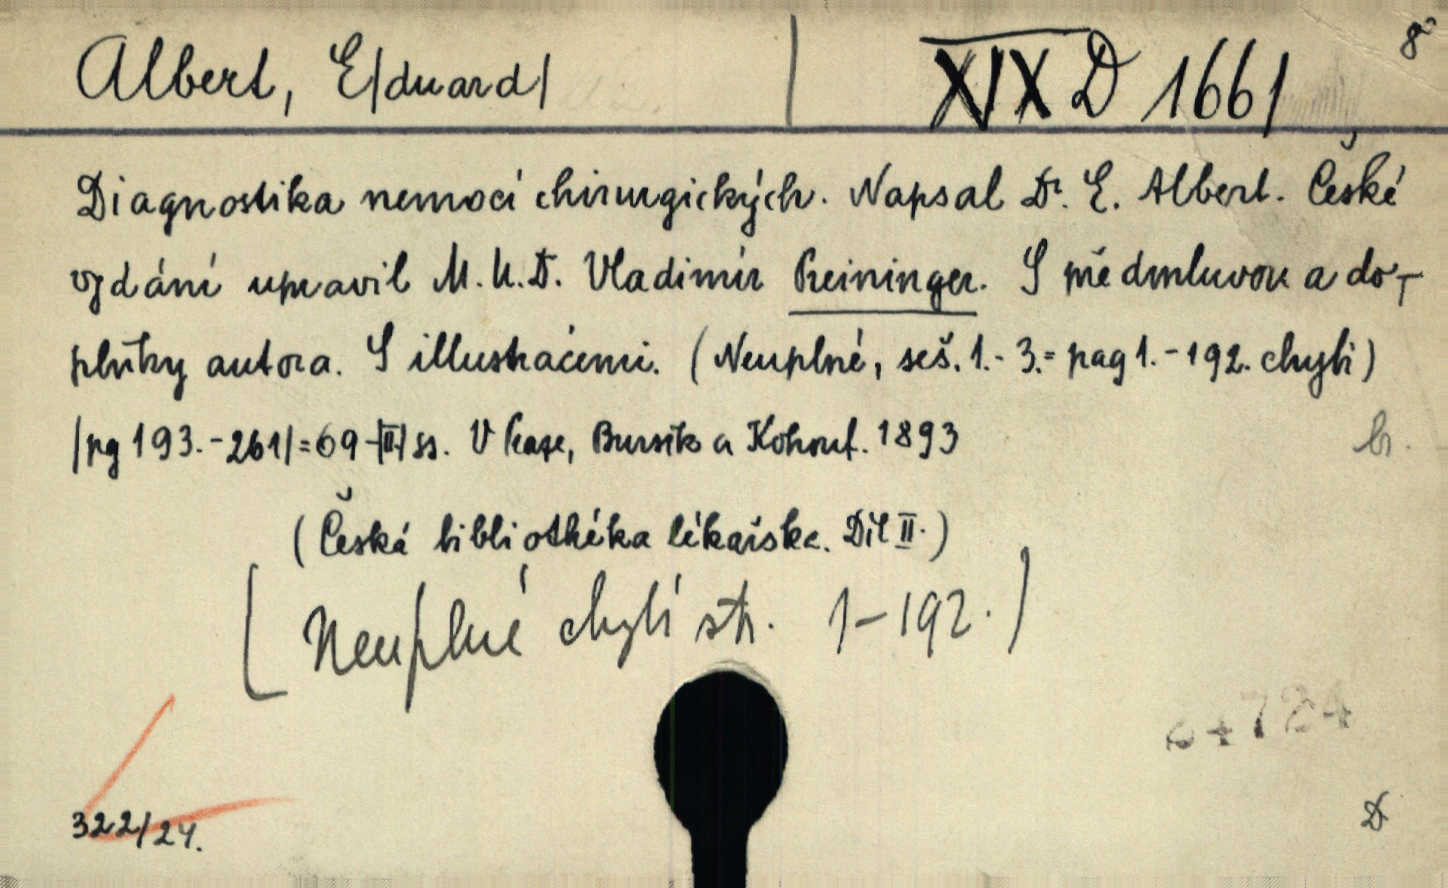 Albert, E/duard/
XIX D 1661
8°
Diagnostika nemocí chirurgických. Napsal Dr. E. Albert. České
vydání upravil M.U.D. Vladimír Preininger. S předmluvou a do-
plňky autora. S illustracemi. (Neuplné, seš. 1.-3.= pag 1.-192. chybí)
/pg 193.-261/=69-/II/ ss. V Praze, Bursík a Kohout. 1893
br.
(Česká bibliothéka lékařská. Díl II.)
[Neuplné chybí str. 1-192.]
64724
322/24.
D